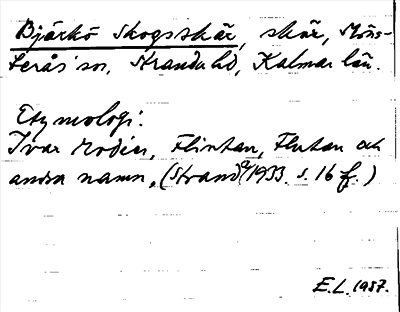 Björkö Skogsskär, skär, Möns-
terås sn, Stranda hd, Kalmar län.
Etymologi:
Ivar Modéer, Flintan, Flutan och
andra namn, (Stranda 1933. s. 16 f.)
E.L. 1987.